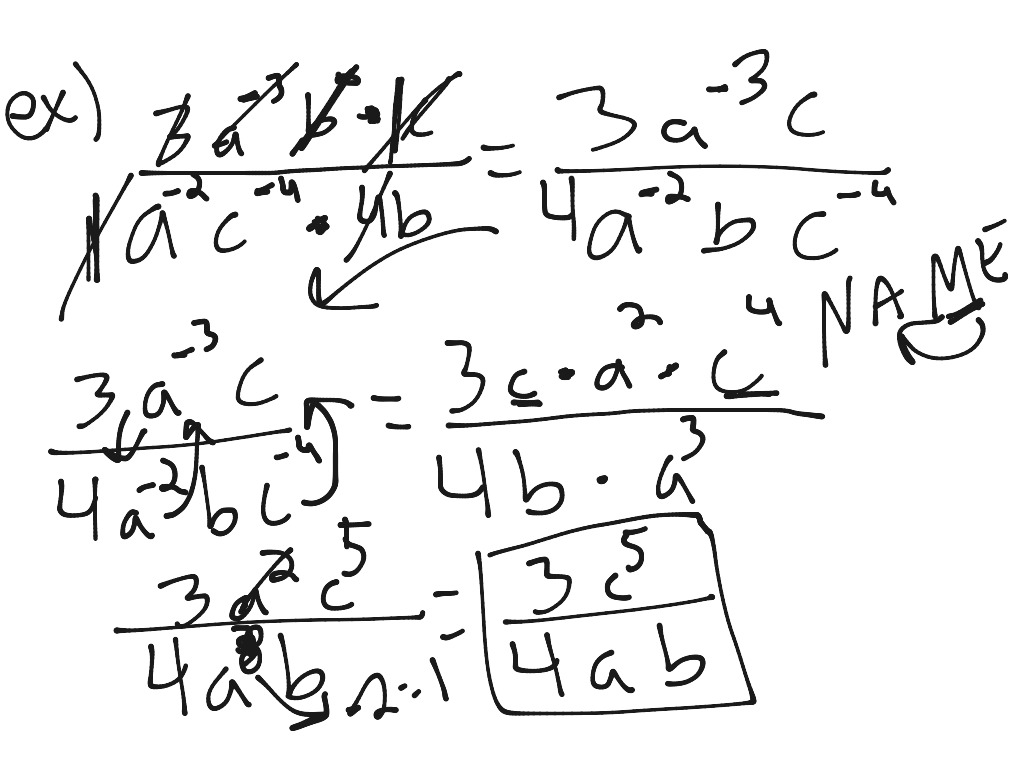 ex) 3a⁻³b⁰ · 1c / 1a⁻²c⁻⁴ · 4b = 3a⁻³c / 4a⁻²bc⁻⁴
NAME
3a⁻³c / 4a⁻²bc⁻⁴ = 3c · a² · c⁴ / 4b · a³
3a²c⁵ / 4a³b = 3c⁵ / 4ab